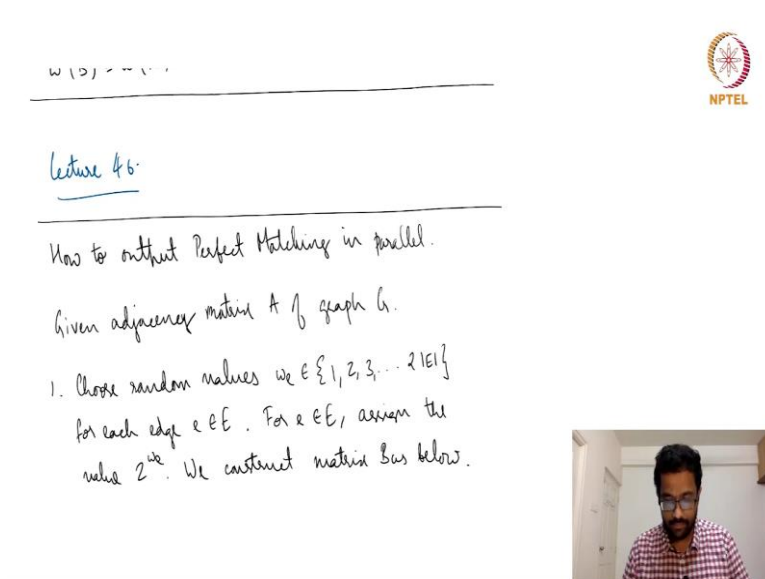 NPTEL
Lecture 46.
How to output Perfect Matching in parallel.
Given adjacency matrix A of graph G.
1. Choose random values we ∈ {1, 2, 3, ... 2|E|}
for each edge e ∈ E. For e ∈ E, assign the
value 2^we. We construct matrix B as below.